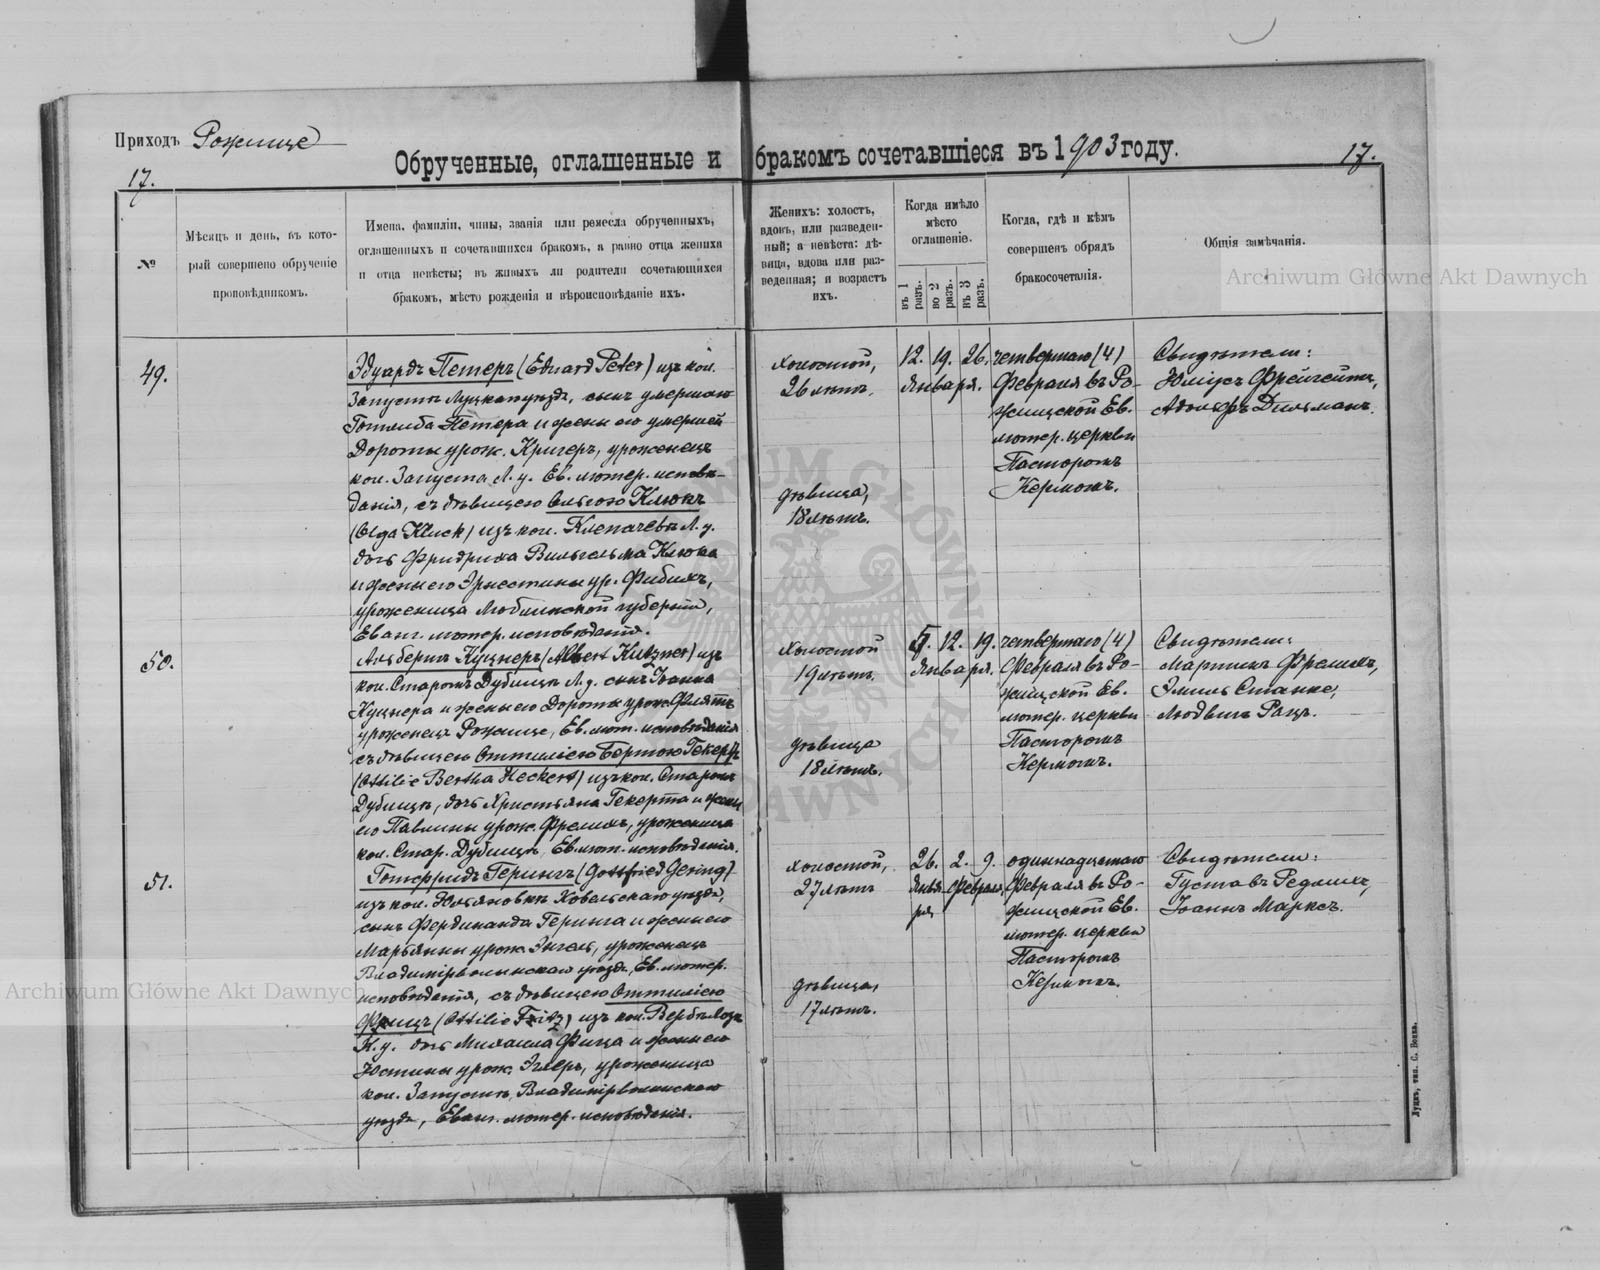 Приходъ Рожище
17.
Обрученные, оглашенные и бракомъ сочетавшіеся въ 1903 году.
17.
№
Мѣсяцъ и день, въ кото-
рый совершено обрученіе
проповѣдникомъ.
Имена, фамиліи, чины, званія или ремесла обрученныхъ,
оглашенныхъ и сочетавшихся бракомъ, а равно отца жениха
и отца невѣсты; въ живыхъ ли родители сочетающихся
бракомъ, мѣсто рожденія и вѣроисповѣданіе ихъ.
Женихъ: холостъ,
вдовъ, или разведен-
ный; а невѣста: дѣ-
вица, вдова или раз-
веденная; и возрастъ
ихъ.
Когда имѣло
мѣсто
оглашеніе.
въ 1
разъ.
во 2
разъ.
въ 3
разъ.
Когда, гдѣ и кѣмъ
совершенъ обрядъ
бракосочетанія.
Общія замѣчанія.
Archiwum Główne Akt Dawnych
49.
Эдуардъ Петеръ (Eduard Peter) изъ кол.
Запустъ Луцкаго уѣзда, сынъ умершаго
Готлиба Петера и жены его умершей
Дороты урож. Кригеръ, уроженецъ
кол. Запуста Л. у. Ев. лютер. исповѣ-
данія, съ дѣвицею Ольгою Клюкъ
(Olga Kluck) изъ кол. Клепачевъ Л. у.
дочь Фридриха Вильгельма Клюка
и жены его Эрнестины ур. Фибихъ,
уроженица Люблинской губерніи,
Еванг. лютер. исповѣданія.
холостой,
26 лѣтъ.
дѣвица,
18 лѣтъ.
12. 19. 26.
Января.
четвертаго (4)
Февраля въ Ро-
жищской Ев.
лютер. церкви
Пасторомъ
Керномъ.
Свидѣтели:
Юліусъ Фрейгейтъ,
Адольфъ Дильманъ.
50.
Альбертъ Куцнеръ (Albert Kutzner) изъ
кол. Старомъ Дубищъ Л. у. сынъ Іоанна
Куцнера и жены его Дороты урож. Флятъ
уроженецъ Рожище, Ев. лют. исповѣданія
съ дѣвицею Оттиліею Бертою Гекертъ
(Ottilie Bertha Heckert) изъ кол. Старомъ
Дубищъ, дочь Христьяна Гекерта и жены
его Павлины урож. Фрелихъ, уроженица
кол. Стар. Дубищъ, Ев. лют. исповѣданія.
холостой
19 лѣтъ.
дѣвица
18 лѣтъ.
5. 12. 19.
Января.
четвертаго (4)
Февраля въ Ро-
жищской Ев.
лютер. церкви
Пасторомъ
Керномъ.
Свидѣтели:
Мартинъ Фрелихъ,
Эмиль Станке,
Людвигъ Рацъ.
51.
Готфридъ Герингъ (Gottfried Gering)
изъ кол. Юльяновки Ковельскаго уѣзда,
сынъ Фердинанда Геринга и жены его
Марьянны урож. Энгель, уроженецъ
Владимірволынскаго уѣзда, Ев. лютер.
исповѣданія, съ дѣвицею Оттиліею
Фрицъ (Ottilie Fritz) изъ кол. Верблозъ
К. у. дочь Михаила Фица и жены его
Юстины урож. Эллеръ, уроженица
кол. Запустъ, Владимірволынскаго
уѣзда, Еванг. лютер. исповѣданія.
холостой,
27 лѣтъ
дѣвица,
17 лѣтъ.
26. 2. 9.
Янва- Февраля
ря
одиннадцатаго
Февраля въ Ро-
жищской Ев.
лютер. церкви
Пасторомъ
Керномъ.
Свидѣтели:
Густавъ Редлихъ,
Іоаннъ Марксъ.
Archiwum Główne Akt Dawnych
Луцкъ, тип. С. Бонка.